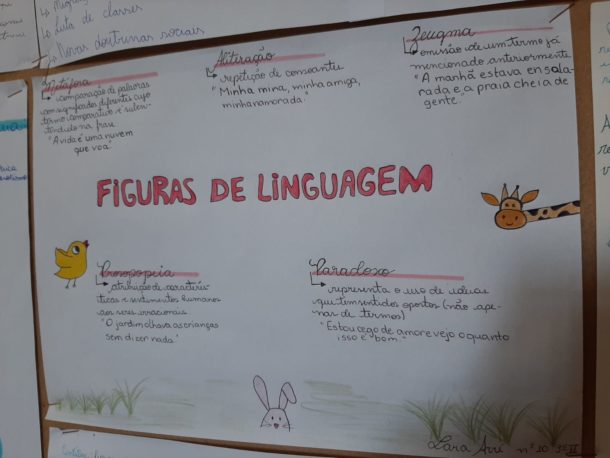 ↳ Luta de classes
↳ Novas doutrinas sociais
Metáfora
↳ comparação de palavras
com significados diferentes cujo
termo comparativo é suben-
tendido na frase
"A vida é uma nuvem
que voa"
Aliteração
↳ repetição de consoantes
"Minha mina, minha amiga,
minha namorada."
Zeugma
↳ omissão de um termo já
mencionado anteriormente
"A manhã estava ensola-
rada e a praia cheia de
gente."
FIGURAS DE LINGUAGEM
Prosopopeia
↳ atribuição de caracterís-
ticas e sentimentos humanos
aos seres irracionais
"O jardim olhava as crianças
sem dizer nada"
Paradoxo
↳ representa o uso de ideias
que tem sentidos opostos (não ape-
nas de termos)
"Estou cego de amor e vejo o quanto
isso é bom."
Lara nº 20